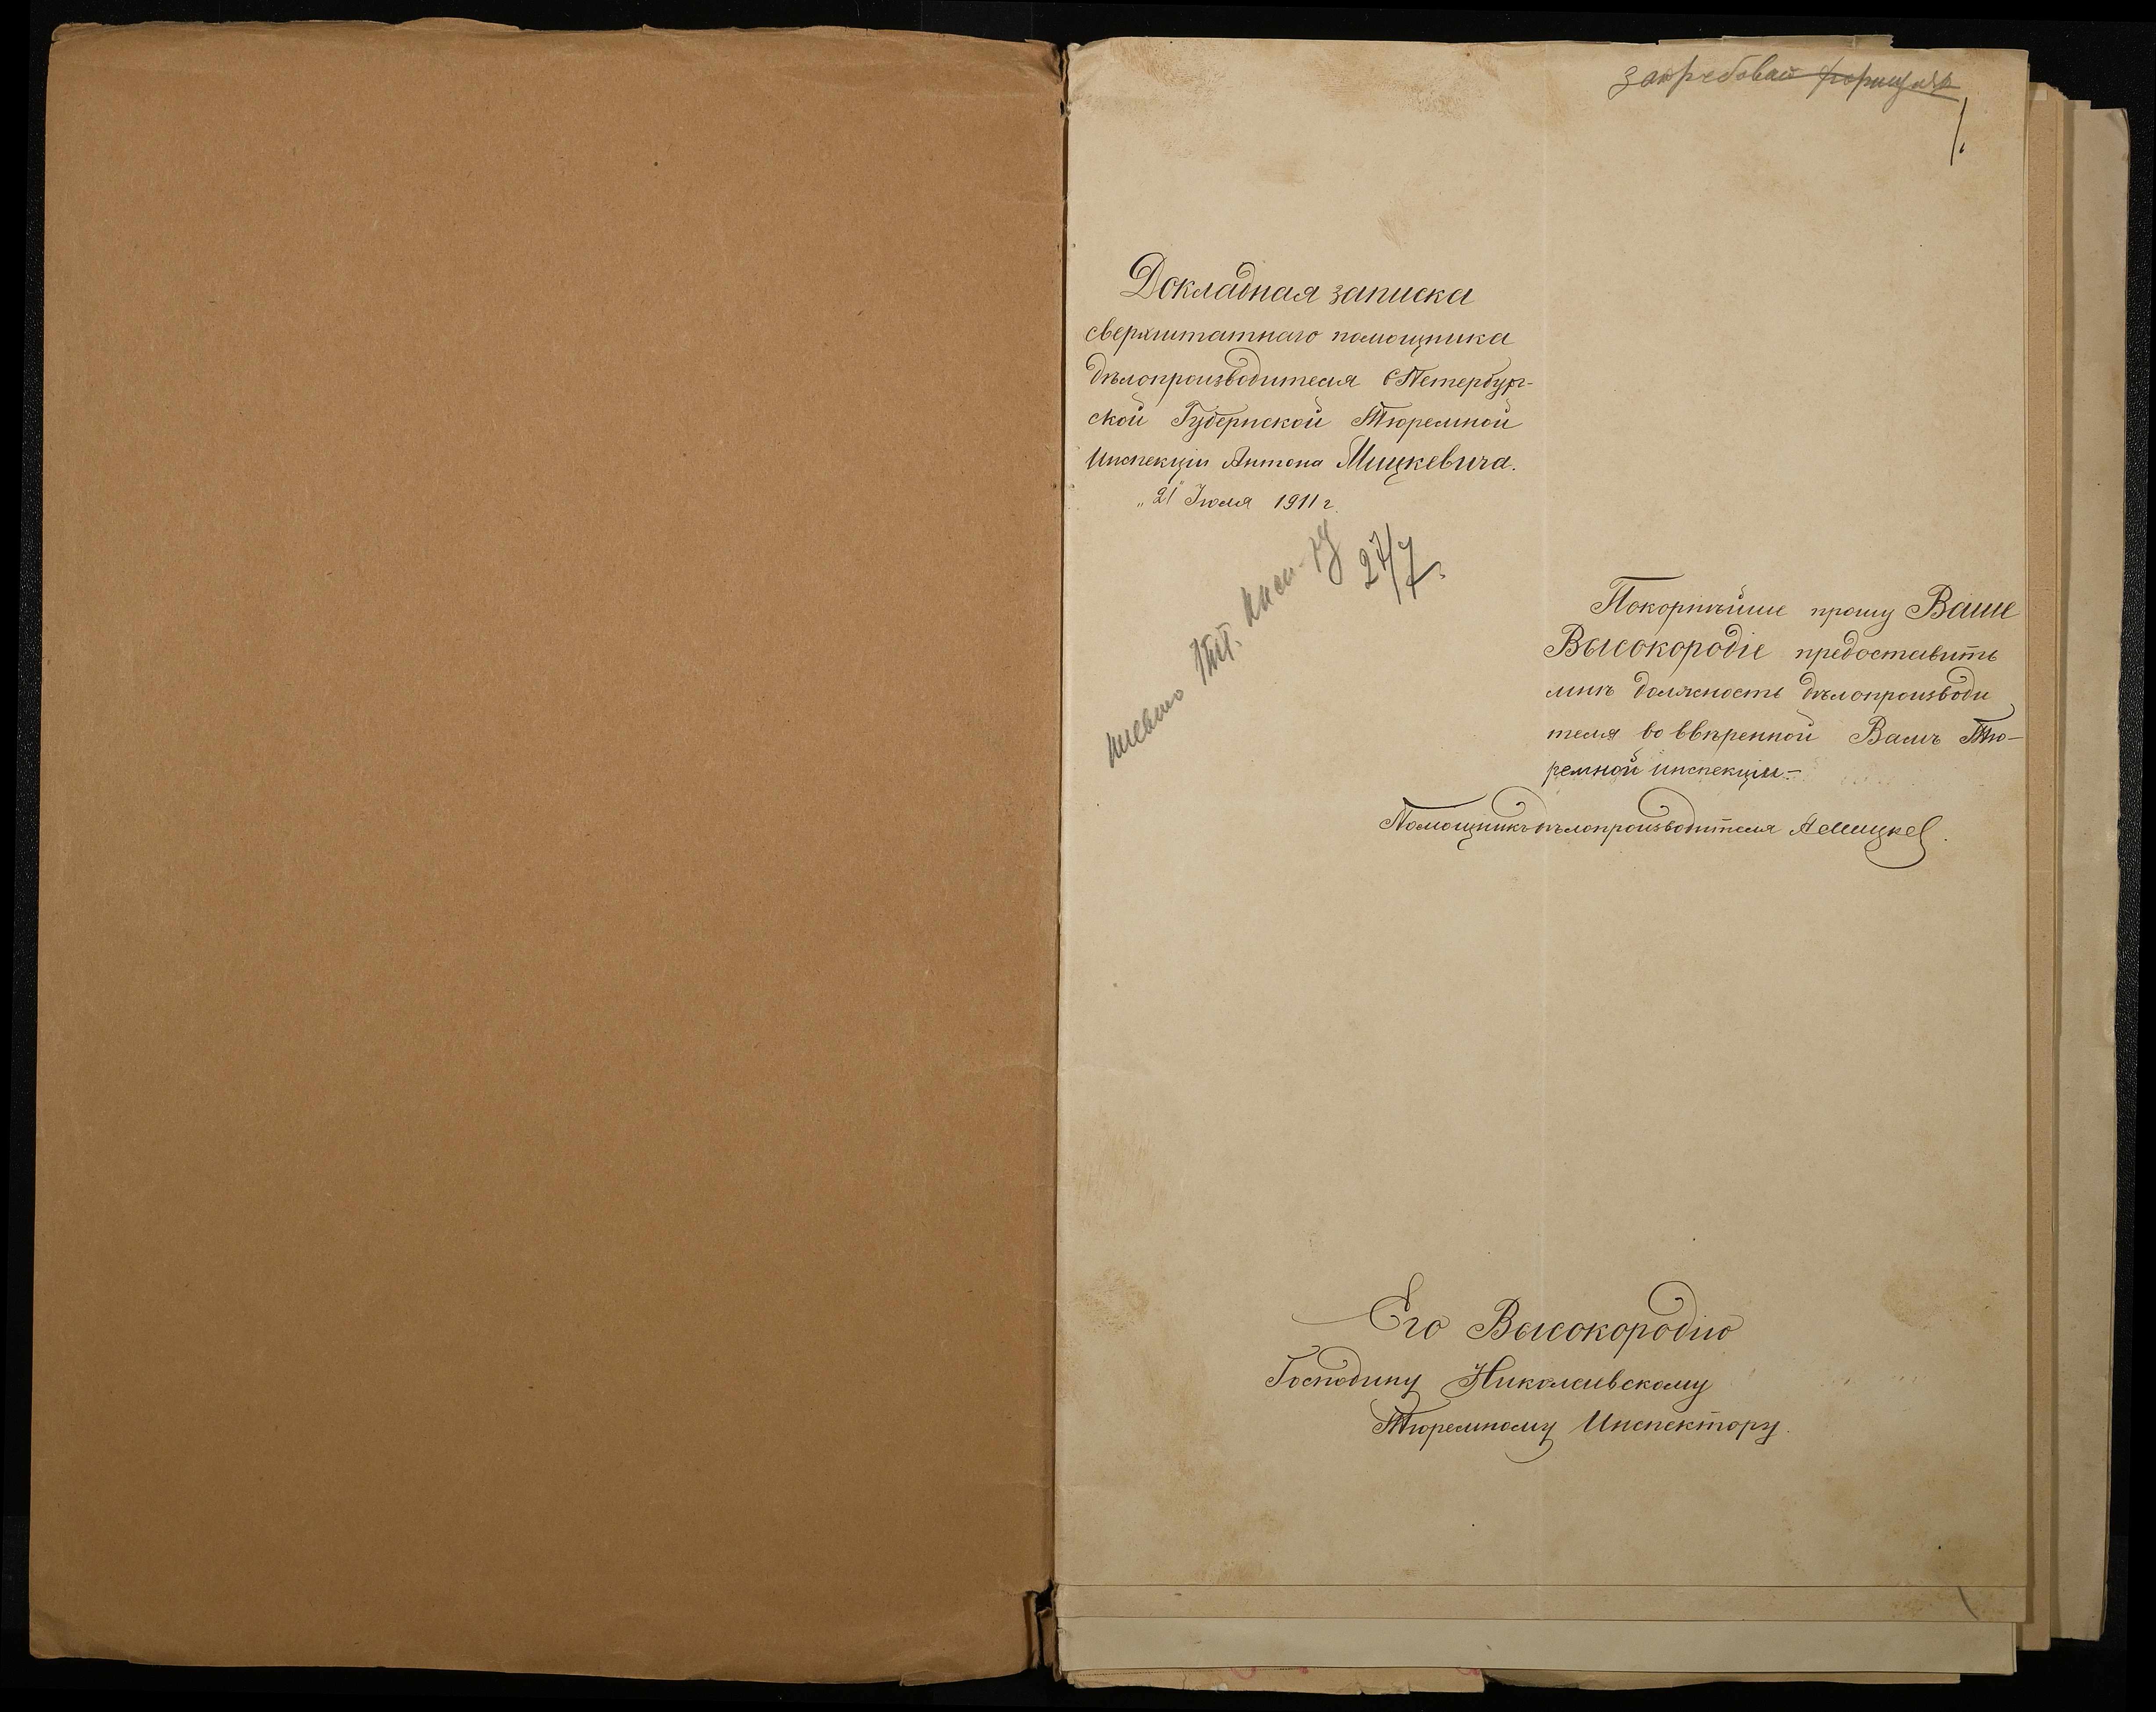 затребовать формуляръ
1.
Докладная записка
сверхштатнаго помощника
дѣлопроизводителя С Петербург-
ской Губернской Тюремной
Инспекціи Антона Мицкевича.
„21" Іюля 1911 г.
27/7.
Покорнѣйше прошу Ваше
Высокородіе предоставить
мнѣ должность дѣлопроизводи
теля во ввѣренной Вамъ Тю-
ремной инспекціи-
Помощникъ дѣлопроизводителя
Его Высокородію
Господину Николаевскому
Тюремному Инспектору.